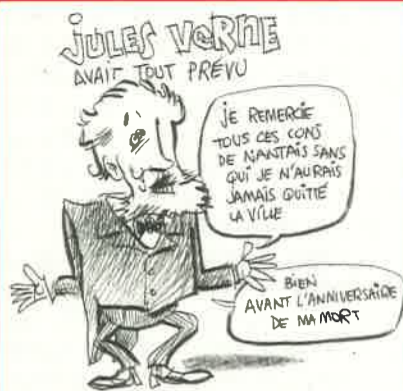 JULES VERNE
AVAIT TOUT PRÉVU
JE REMERCIE
TOUS CES CONS
DE NANTAIS SANS
QUI JE N'AURAIS
JAMAIS QUITTÉ
LA VILLE
BIEN
AVANT L'ANNIVERSAIRE
DE MA MORT